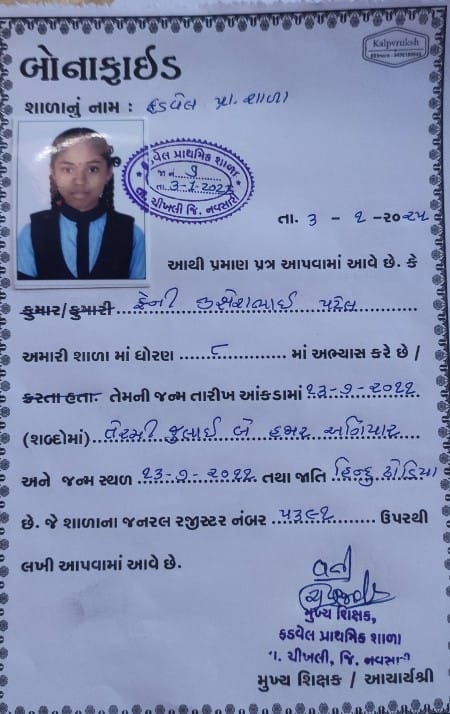 Kalpvruksh
બોનાફાઈડ
શાળાનું નામ : ફડવેલ પ્રા. શાળા
ફડવેલ પ્રાથમિક શાળા
જા નં. 9
તા. 3-1-2025
તા. ચીખલી જિ. નવસારી
તા. ૩ - ૧ - ૨૦૨૫
આથી પ્રમાણ પત્ર આપવામાં આવે છે. કે
કુમાર/કુમારી પટેલ
અમારી શાળા માં ધોરણ ૮ માં અભ્યાસ કરે છે /
કરતા હતા. તેમની જન્મ તારીખ આંકડામાં ૧૩-૭-૨૦૧૧
(શબ્દોમાં) તેરમી જુલાઈ બે હજાર અગિયાર
અને જન્મ સ્થળ ૧૩-૭-૨૦૧૧ તથા જાતિ હિન્દુ ધોડિયા
છે. જે શાળાના જનરલ રજીસ્ટર નંબર ૫૩૯૧ ઉપરથી
લખી આપવામાં આવે છે.
મુખ્ય શિક્ષક,
ફડવેલ પ્રાથમિક શાળા
તા. ચીખલી, જિ. નવસારી
મુખ્ય શિક્ષક / આચાર્યશ્રી